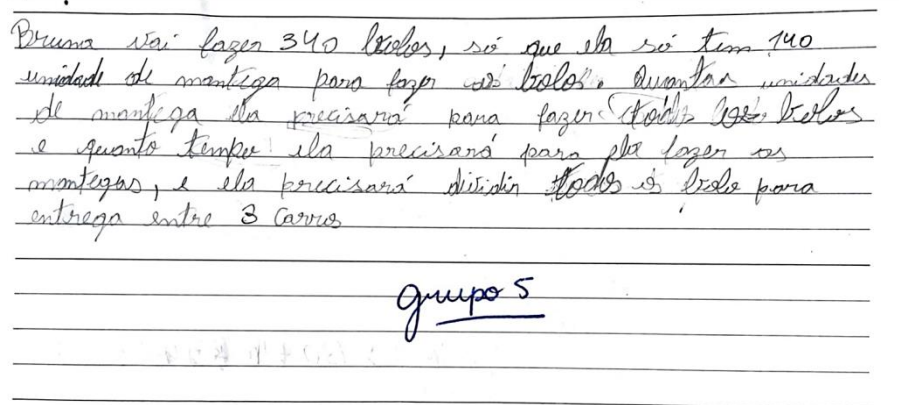 Bruna vai fazer 340 bolos, só que ela só tem 140
unidade de mantiga para fazer os bolos. Quantas unidades
de mantega ela precisará para fazer todos os bolos
e quanto tempo ela precisará para ela fazer os
mantegas, e ela precisará dividir todos os bolo para
entrega entre 3 carros
grupo 5